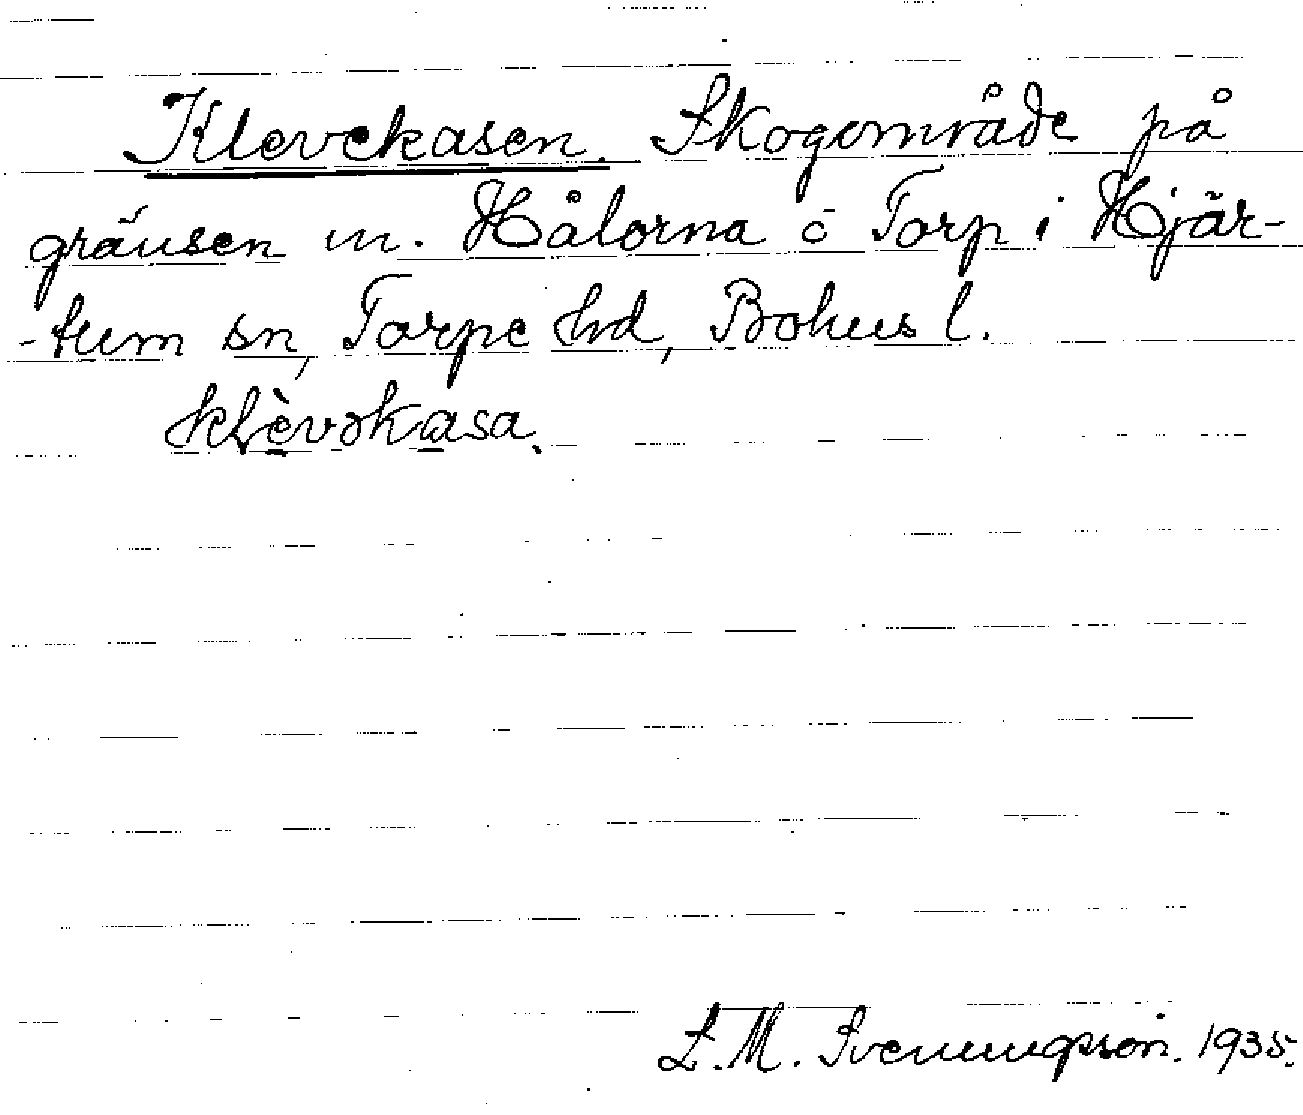 Klevekasen. Skogområde på
gränsen m. Hålorna o Torp i Hjär-
-tum sn, Torpe hd, Bohus l.
klèvəkasa.
L. M. Svenungsson. 1935.